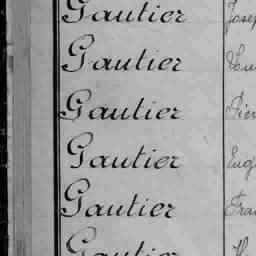 Gautier Josep
Gautier Lou
Gautier Pier
Gautier Eug
Gautier Fran
Gautier